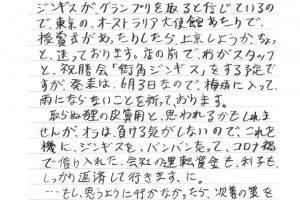 ジンギスが、グランプリを取ると信じているの
で、東京の、オーストラリア大使館あたりで、
授賞式があったりしたら、上京しようか、ちょっ
と、迷っております。店の前で、わがスタッフ
と、祝勝会「街角ジンギス」をする予定で
すが、発表は、6月3日なので、梅雨に入って、
雨にならないことを祈っております。
取らぬ狸の皮算用と、思われるかもしれま
せんが、オラは、負ける気がしないので、これを
機に、ジンギスを、バンバン売って、コロナ禍
で借り入れた、会社の運転資金も、利子も、
しっかり返済して行きます、に。
…もし、思うように行かなかったら、次善の策を